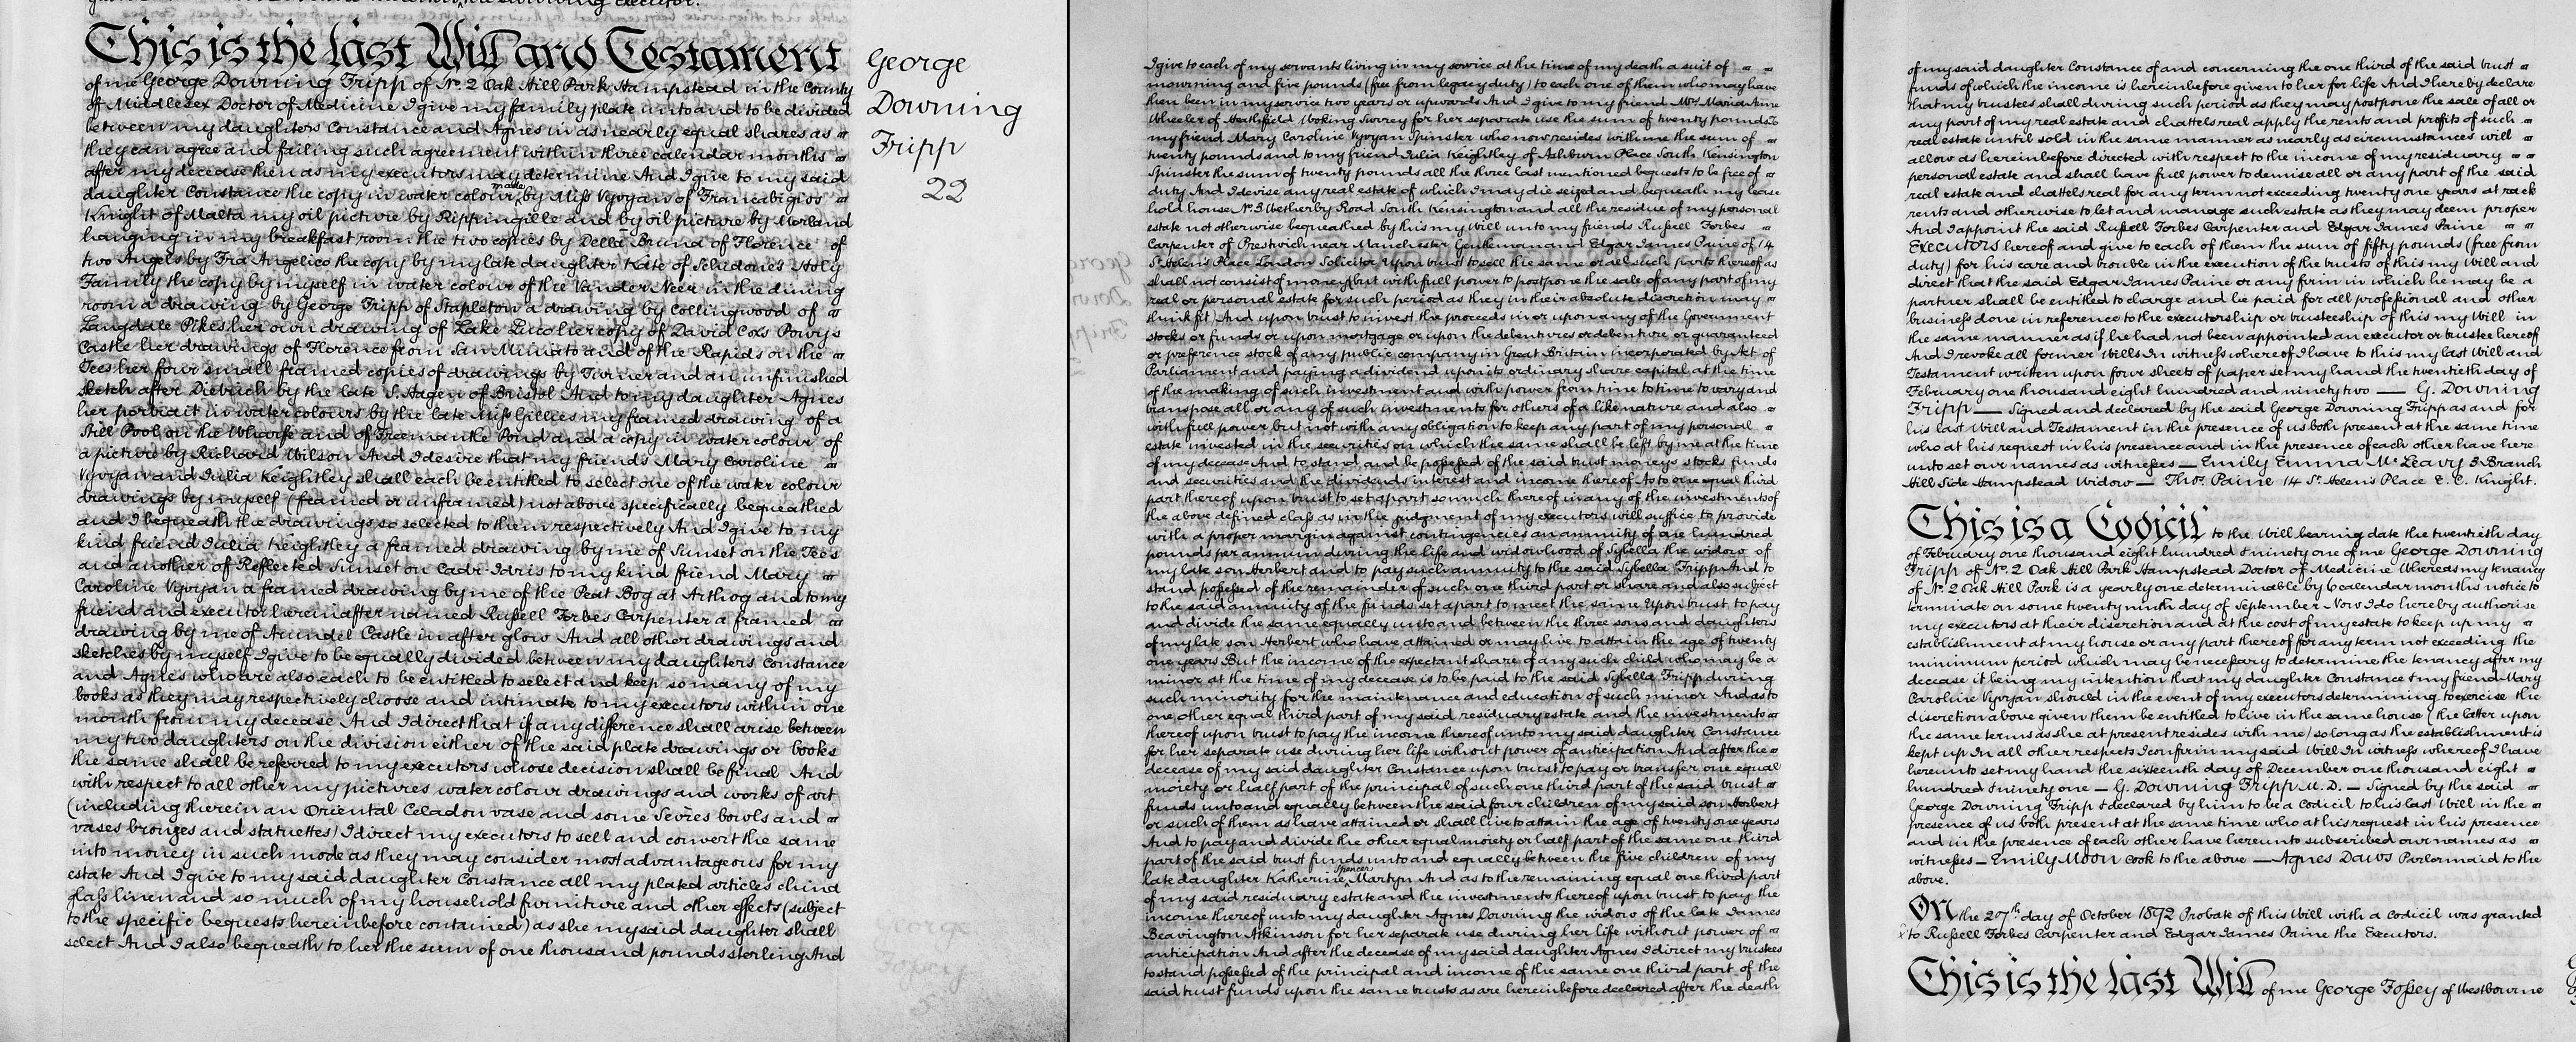 the surviving executor.
This is the last Will and Testament
of me George Downing Tripp of No. 2 Oak Hill Park Hampstead in the County
of Middlesex Doctor of Medicine I give my family plate unto and to be divided
between my daughters Constance and Agnes in as nearly equal shares as
they can agree and failing such agreement within three calendar months
after my decease then as my executors may determine And I give to my said
daughter Constance the copy in water colour made by Miss Vyvyan of Francabigios
Knight of Malta my oil picture by Rippingille and by oil picture by Morland
hanging in my breakfast room the two copies by Della Bruna of Florence of
two Angels by Fra Angelico the copy by my late daughter Kate of Schidone's Holy
Family the copy by myself in water colour of the Vander Neer in the dining
room a drawing by George Tripp of Stapleton a drawing by Collingwood of
Langdale Pikes her own drawing of Lake Luco her copy of David Cox Powys
Castle her drawings of Florence from San Miniato and of the Rapids on the
Tees her four small framed copies of drawings by Turner and an unfinished
sketch after Dietrich by the late S. Hagen of Bristol And to my daughter Agnes
her portrait in water colours by the late Miss Gillies my framed drawing of a
Still Pool on the Wharfe and of Freemantle Pond and a copy in water colour of
a picture by Richard Wilson And I desire that my friends Mary Caroline
Vyvyan and Julia Keightley shall each be entitled to select one of the water colour
drawings by myself (framed or unframed) not above specifically bequeathed
and I bequeath the drawings so selected to them respectively And I give to my
kind friend Julia Keightley a framed drawing by me of Sunset on the Tees
and another of Reflected Sunset on Cadr-Idris to my kind friend Mary
Caroline Vyvyan a framed drawing by me of the Peat Bog at Arthog and to my
friend and executor hereinafter named Russell Forbes Carpenter a framed
drawing by me of Arundel Castle in after glow And all other drawings and
sketches by myself I give to be equally divided between my daughters Constance
and Agnes who are also each to be entitled to select and keep so many of my
books as they may respectively choose and intimate to my executors within one
month from my decease And I direct that if any difference shall arise between
my two daughters on the division either of the said plate drawings or books
the same shall be referred to my executors whose decision shall be final And
with respect to all other my pictures water colour drawings and works of art
(including therein an Oriental Celadon vase and some Sèvres bowls and
vases bronzes and statuettes) I direct my executors to sell and convert the same
into money in such mode as they may consider most advantageous for my
estate And I give to my said daughter Constance all my plated articles china
glass linen and so much of my household furniture and other effects (subject
to the specific bequests hereinbefore contained) as she my said daughter shall
select And I also bequeath to her the sum of one thousand pounds sterling And
George
Downing
Tripp
22
I give to each of my servants living in my service at the time of my death a suit of
mourning and five pounds (free from legacy duty) to each one of them who may have
then been in my service two years or upwards And I give to my friend Mrs. Maria Anne
Wheeler of Heathfield Woking Surrey for her separate use the sum of twenty pounds To
my friend Mary Caroline Vyvyan Spinster who now resides with me the sum of
twenty pounds and to my friend Julia Keightley of Ashburn Place South Kensington
Spinster the sum of twenty pounds all the three last mentioned bequests to be free of
duty And I devise any real estate of which I may die seized and bequeath my lease
hold house No. 3 Wetherby Road South Kensington and all the residue of my personal
estate not otherwise bequeathed by this my Will unto my friends Russell Forbes
Carpenter of Prestwich near Manchester Gentleman and Edgar James Paine of 14
St. Helen's Place London Solicitor Upon trust to sell the same or all such parts thereof as
shall not consist of money but with full power to postpone the sale of any part of my
real or personal estate for such period as they in their absolute discretion may
think fit And upon trust to invest the proceeds in or upon any of the Government
stocks or funds or upon mortgage or upon the debentures or debenture or guaranteed
or preference stock of any public company in Great Britain incorporated by Act of
Parliament and paying a dividend upon its ordinary share capital at the time
of the making of such investment and with power from time to time to vary and
transpose all or any of such investments for others of a like nature and also
with full power but not with any obligation to keep any part of my personal
estate invested in the securities on which the same shall be left by me at the time
of my decease And to stand and be possessed of the said trust moneys stocks funds
and securities and the dividends interest and income thereof As to one equal third
part thereof upon trust to set apart so much thereof in any of the investments of
the above defined class as in the judgment of my executors will suffice to provide
with a proper margin against contingencies an annuity of one hundred
pounds per annum during the life and widowhood of Sybella the widow of
my late son Herbert and to pay such annuity to the said Sybella Tripp And to
stand possessed of the remainder of such one third part or share and also subject
to the said annuity of the funds set apart to meet the same Upon trust to pay
and divide the same equally unto and between the three sons and daughters
of my late son Herbert who have attained or may live to attain the age of twenty
one years But the income of the expectant share of any such child who may be a
minor at the time of my decease is to be paid to the said Sybella Tripp during
such minority for the maintenance and education of such minor And as to
one other equal third part of my said residuary estate and the investments
thereof upon trust to pay the income thereof unto my said daughter Constance
for her separate use during her life without power of anticipation And after the
decease of my said daughter Constance upon trust to pay or transfer one equal
moiety or half part of the principal of such one third part of the said trust
funds unto and equally between the said four children of my said son Herbert
or such of them as have attained or shall live to attain the age of twenty one years
And to pay and divide the other equal moiety or half part of the same one third
part of the said trust funds unto and equally between the five children of my
late daughter Katherine Spencer Martyn And as to the remaining equal one third part
of my said residuary estate and the investments thereof upon trust to pay the
income thereof unto my daughter Agnes Downing the widow of the late James
Beavington Atkinson for her separate use during her life without power of
anticipation And after the decease of my said daughter Agnes I direct my trustees
to stand possessed of the principal and income of the same one third part of the
said trust funds upon the same trusts as are hereinbefore declared after the death
of my said daughter Constance of and concerning the one third of the said trust
funds of which the income is hereinbefore given to her for life And I hereby declare
that my trustees shall during such period as they may postpone the sale of all or
any part of my real estate and chattels real apply the rents and profits of such
real estate until sold in the same manner as nearly as circumstances will
allow as hereinbefore directed with respect to the income of my residuary
personal estate and shall have full power to demise all or any part of the said
real estate and chattels real for any term not exceeding twenty one years at rack
rents and otherwise to let and manage such estate as they may deem proper
And I appoint the said Russell Forbes Carpenter and Edgar James Paine
Executors hereof and give to each of them the sum of fifty pounds (free from
duty) for his care and trouble in the execution of the trusts of this my Will and
direct that the said Edgar James Paine or any firm in which he may be a
partner shall be entitled to charge and be paid for all professional and other
business done in reference to the executorship or trusteeship of this my Will in
the same manner as if he had not been appointed an executor or trustee hereof
And I revoke all former Wills In witness whereof I have to this my last Will and
Testament written upon four sheets of paper set my hand the twentieth day of
February one thousand eight hundred and ninety two — G. Downing
Tripp — Signed and declared by the said George Downing Tripp as and for
his last Will and Testament in the presence of us both present at the same time
who at his request in his presence and in the presence of each other have here
unto set our names as witnesses — Emily Emma Mc. Leavy 3 Branch
Hill Side Hampstead Widow — Thos. Paine 14 St. Helen's Place E. C. Knight.
This is a Codicil to the Will bearing date the twentieth day
of February one thousand eight hundred & ninety one of me George Downing
Tripp of No. 2 Oak Hill Park Hampstead Doctor of Medicine Whereas my tenancy
of No. 2 Oak Hill Park is a yearly one determinable by 6 calendar months notice to
terminate on some twenty ninth day of September Now I do hereby authorise
my executors at their discretion and at the cost of my estate to keep up my
establishment at my house or any part thereof for any term not exceeding the
minimum period which may be necessary to determine the tenancy after my
decease it being my intention that my daughter Constance & my friend Mary
Caroline Vyvyan should in the event of my executors determining to exercise the
discretion above given them be entitled to live in the same house (the latter upon
the same terms as she at present resides with me) so long as the establishment is
kept up In all other respects I confirm my said Will In witness whereof I have
hereunto set my hand the sixteenth day of December one thousand eight
hundred & ninety one — G. Downing Tripp M. D. — Signed by the said
George Downing Tripp & declared by him to be a Codicil to his last Will in the
presence of us both present at the same time who at his request in his presence
and in the presence of each other have hereunto subscribed our names as
witnesses — Emily Moon Cook to the above — Agnes Daws Parlormaid to the
above.
On the 27th day of October 1892 Probate of this Will with a Codicil was granted
to Russell Forbes Carpenter and Edgar James Paine the Executors.
This is the last Will of me George Fossey of Westbourne